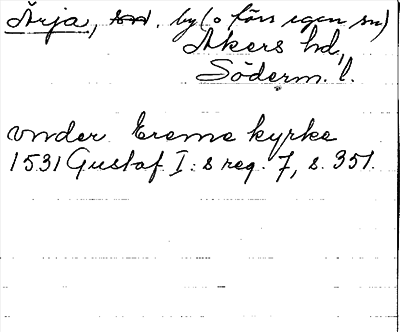 Ärja, by (o förr egen sn)
Åkers hd,
Söderm. l.
vnder Ereme kyrke
1531 Gustaf I:s reg. 7, s. 351.